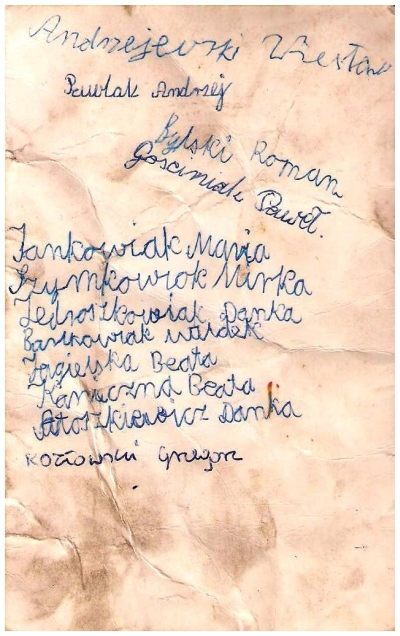 Andrzejewski Wiesław
Pawlak Andrzej
Bylski Roman
Gościniak Paweł.
Jankowiak Maria
Szymkowiak Mirka
Jędroszkowiak Danka
Bartkowiak Waldek
Jagielska Beata
Kanieczna Beata
Staszkiewicz Danka
Kozłowski Grzegorz